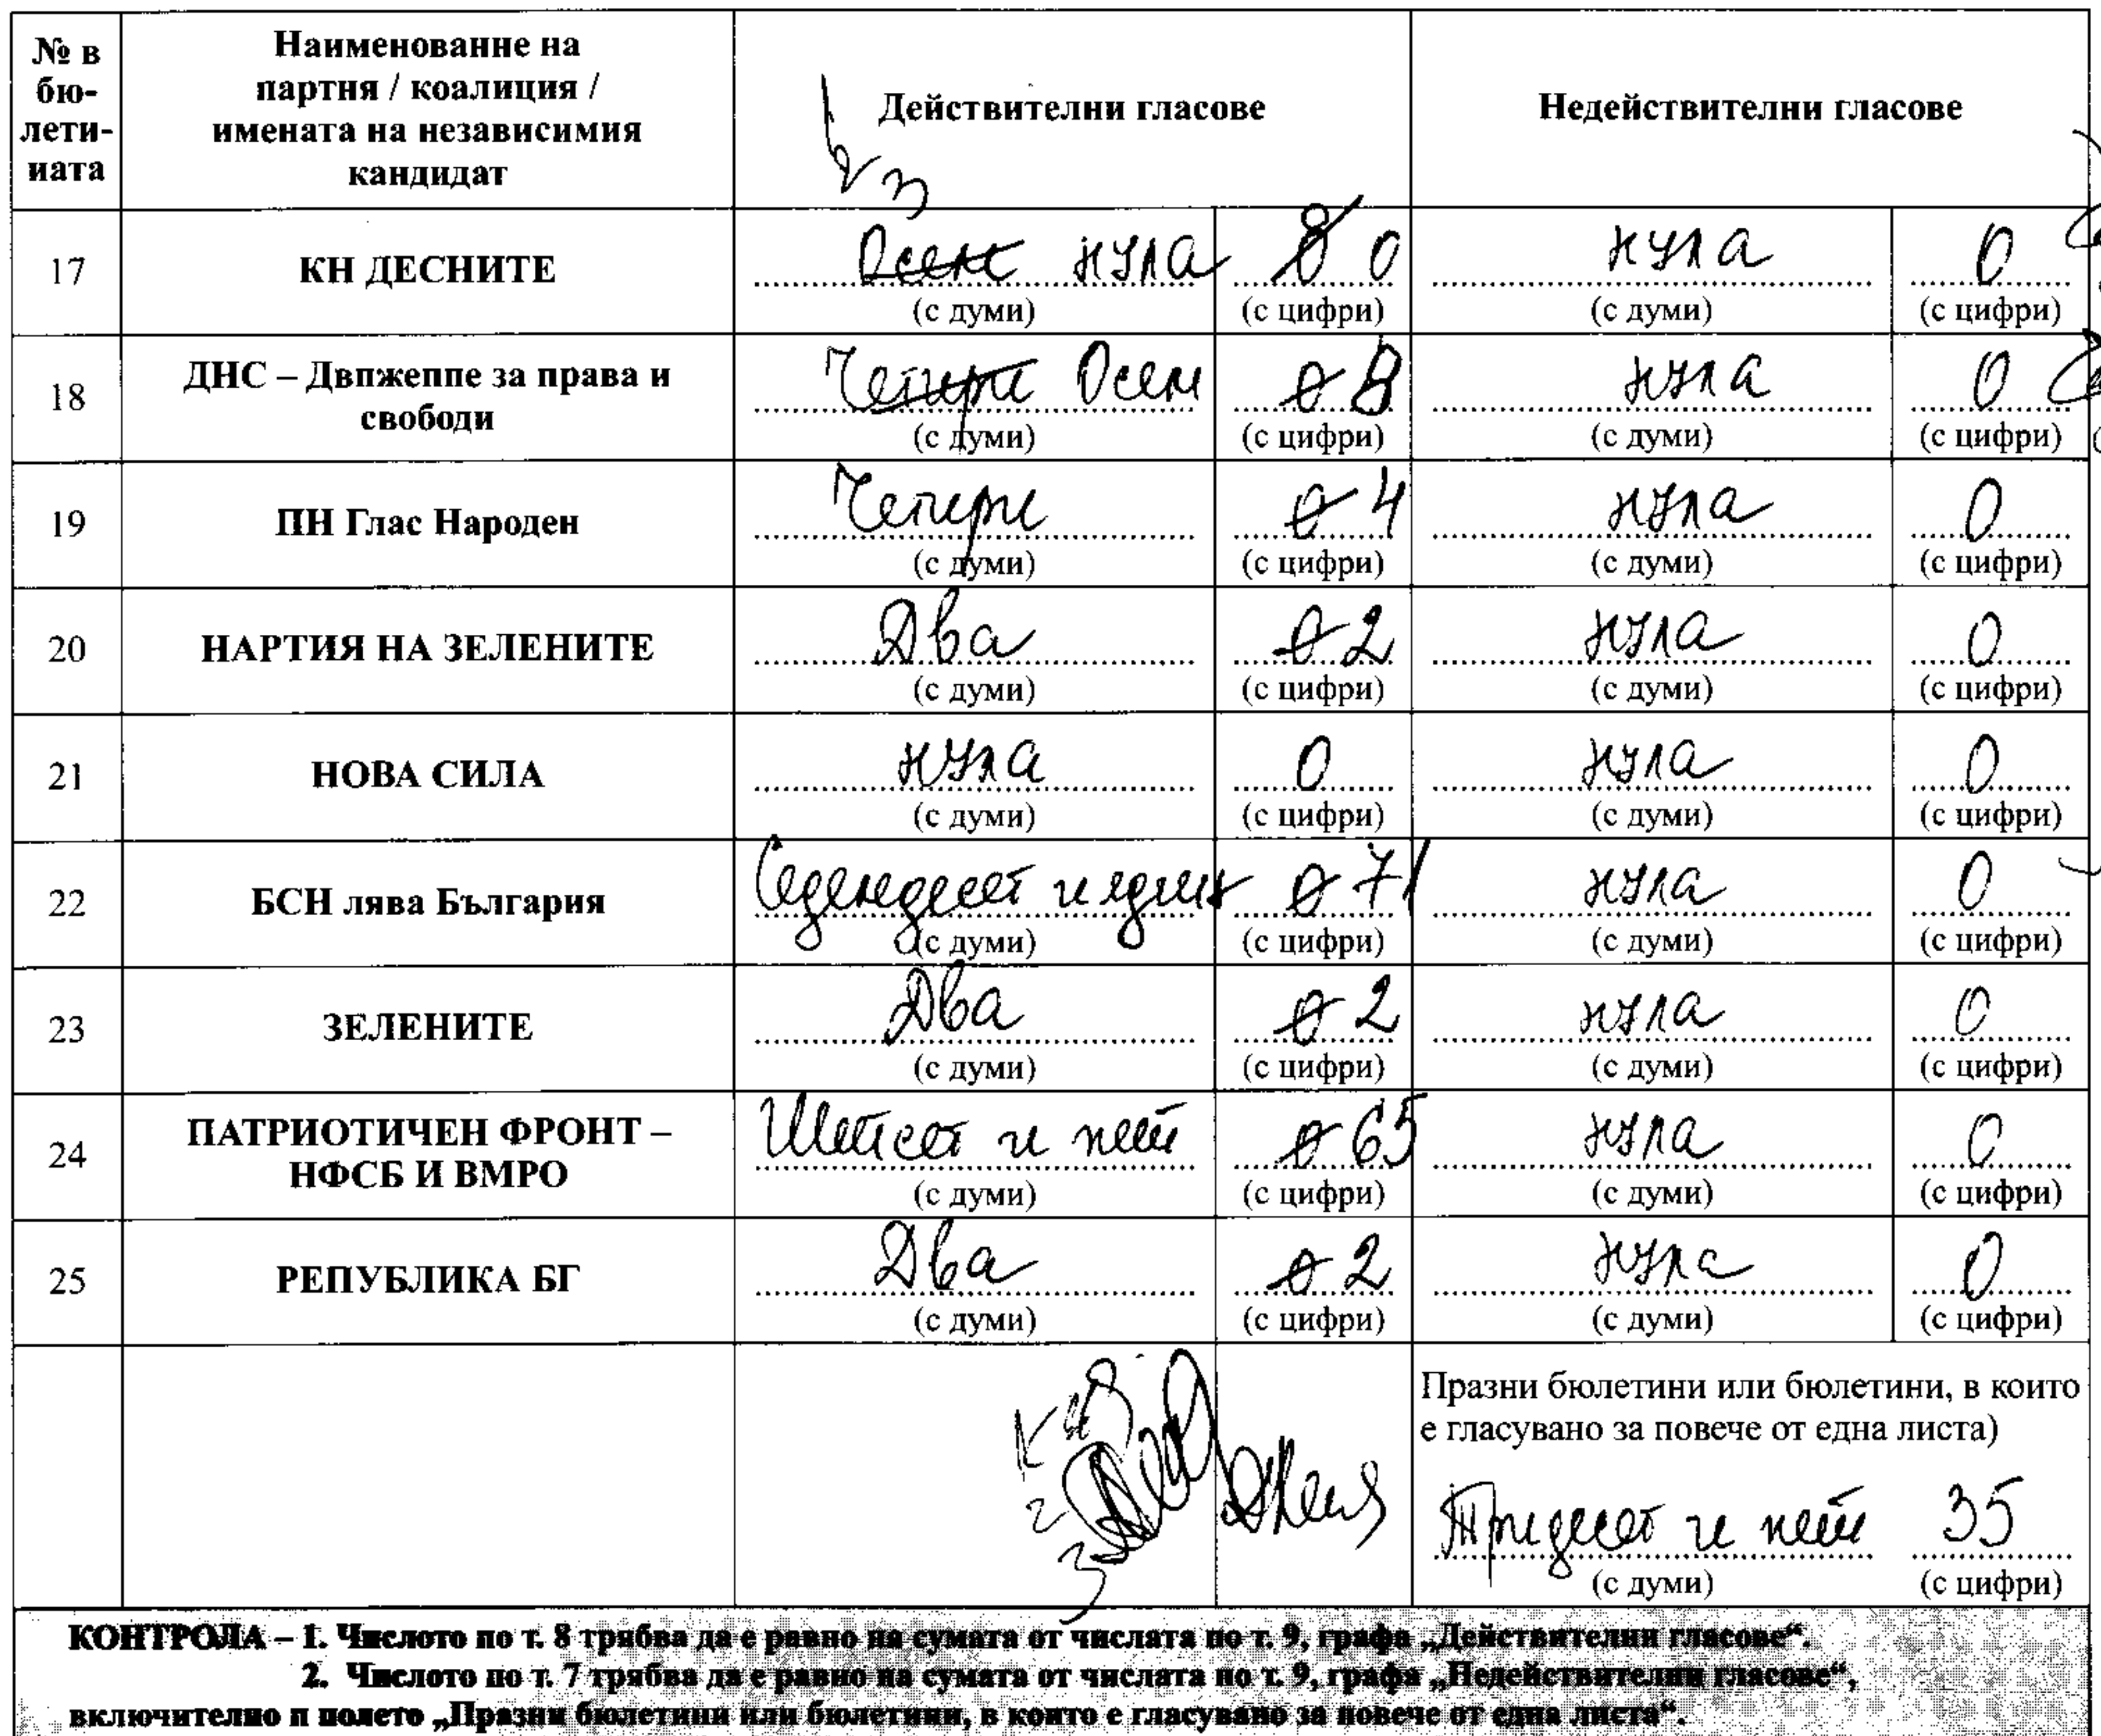 № в бю- лети- ната
Наименование на партия / коалиция / имената на независимия кандидат
Действителни гласове
Недействителни гласове
2 3
17 КН ДЕСНИТЕ Осем нула 8 0 нула 0
(с думи) (с цифри) (с думи) (с цифри)
18 ДНС – Двпжеппе за права и свободи Четири Осем 0 8 нула 0
(с думи) (с цифри) (с думи) (с цифри)
19 ПН Глас Народен Четири 0 4 нула 0
(с думи) (с цифри) (с думи) (с цифри)
20 НАРТИЯ НА ЗЕЛЕНИТЕ Два 0 2 нула 0
(с думи) (с цифри) (с думи) (с цифри)
21 НОВА СИЛА нула 0 нула 0
(с думи) (с цифри) (с думи) (с цифри)
22 БСН лява България Седемдесет и един 0 71 нула 0
(с думи) (с цифри) (с думи) (с цифри)
23 ЗЕЛЕНИТЕ Два 0 2 нула 0
(с думи) (с цифри) (с думи) (с цифри)
24 ПАТРИОТИЧЕН ФРОНТ – НФСБ И ВМРО Шейсет и пет 0 65 нула 0
(с думи) (с цифри) (с думи) (с цифри)
25 РЕПУБЛИКА БГ Два 0 2 нула 0
(с думи) (с цифри) (с думи) (с цифри)
Празни бюлетини или бюлетини, в които
е гласувано за повече от една листа)
2
3
Тридесет и пет 35
(с думи) (с цифри)
КОНТРОЛА – 1. Числото по т. 8 трябва да е равно на сумата от числата по т. 9, графа „Действителни гласове“.
2. Числото по т. 7 трябва да е равно на сумата от числата по т. 9, графа „Недействителни гласове“,
включително п полето „Празни бюлетини или бюлетини, в които е гласувано за повече от една листа“.